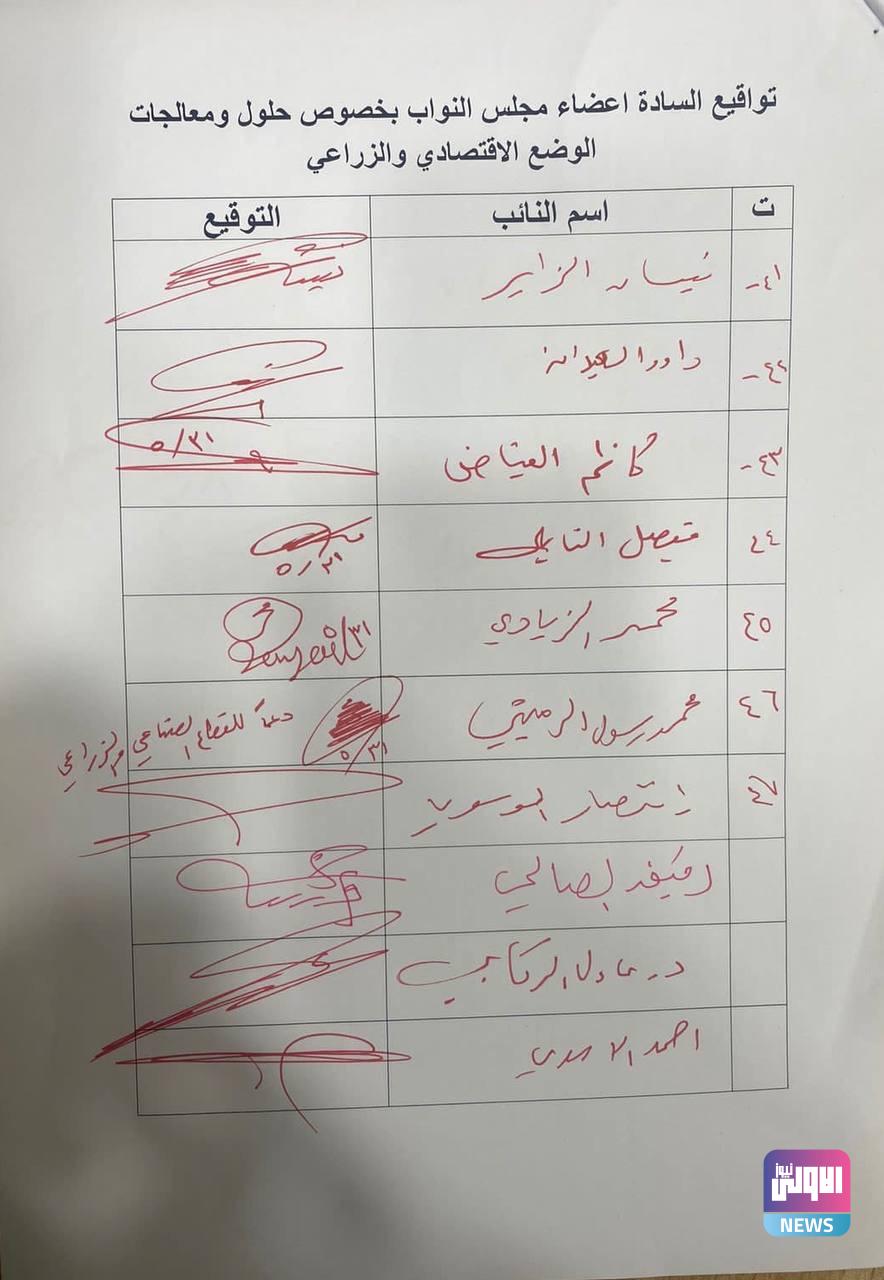 تواقيع السادة اعضاء مجلس النواب بخصوص حلول ومعالجات
الوضع الاقتصادي والزراعي
ت اسم النائب التوقيع
٤١- نيسان الزاير
٤٢- داود العيدان
٤٣- كاظم الفياض ٥/٣١
٤٤ فيصل النايلي ٥/٣١
٤٥ محمد الزيادي ٥/٣١
٤٦ محمد رسول الرميثي ٥/٣١ دعماً للقطاع الصناعي والزراعي
٤٧ انتصار الموسوي
رفيف الصالحي
د. عادل الركابي
احمد الاسدي
الاولى نيوز
NEWS